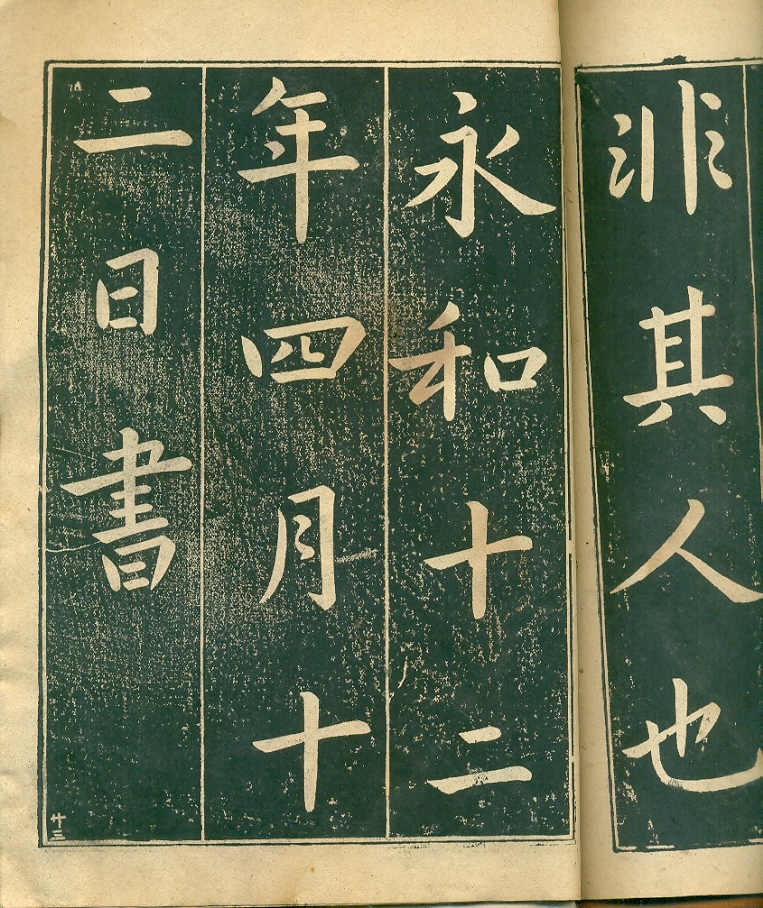 非其人也
永和十二
年四月十
二日書
廿三